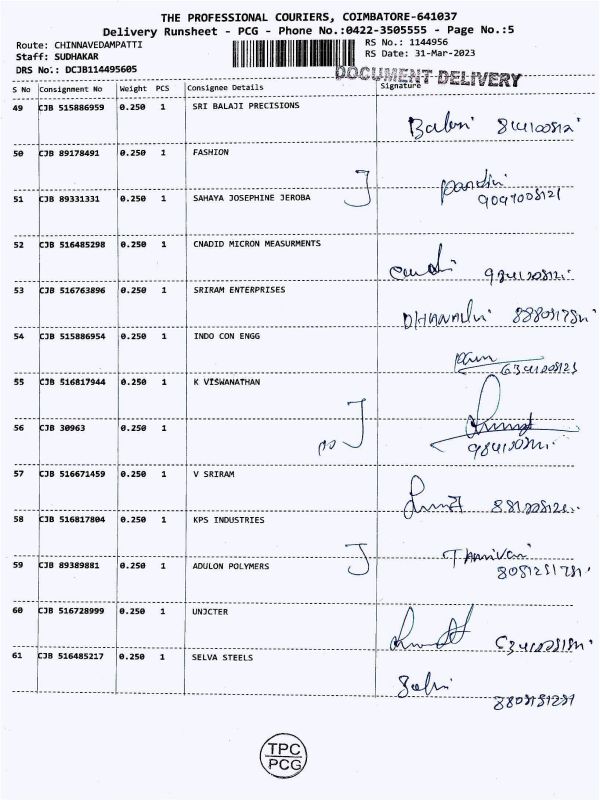 THE PROFESSIONAL COURIERS, COIMBATORE-641037
Delivery Runsheet - PCG - Phone No.:0422-3505555 - Page No.:5
Route: CHINNAVEDAMPATTI RS No.: 1144956
Staff: SUDHAKAR RS Date: 31-Mar-2023
DRS No.: DCJB114495605
DOCUMENT DELIVERY
S No Consignment No Weight PCS Consignee Details Signature
49 CJB 515886959 0.250 1 SRI BALAJI PRECISIONS
50 CJB 89178491 0.250 1 FASHION
51 CJB 89331331 0.250 1 SAHAYA JOSEPHINE JEROBA
52 CJB 516485298 0.250 1 CNADID MICRON MEASURMENTS
53 CJB 516763896 0.250 1 SRIRAM ENTERPRISES
54 CJB 515886954 0.250 1 INDO CON ENGG
55 CJB 516817944 0.250 1 K VISWANATHAN
56 CJB 30963 0.250 1
57 CJB 516671459 0.250 1 V SRIRAM
58 CJB 516817804 0.250 1 KPS INDUSTRIES
59 CJB 89389881 0.250 1 ADULON POLYMERS
60 CJB 516728999 0.250 1 UNJCTER
61 CJB 516485217 0.250 1 SELVA STEELS
TPC
PCG